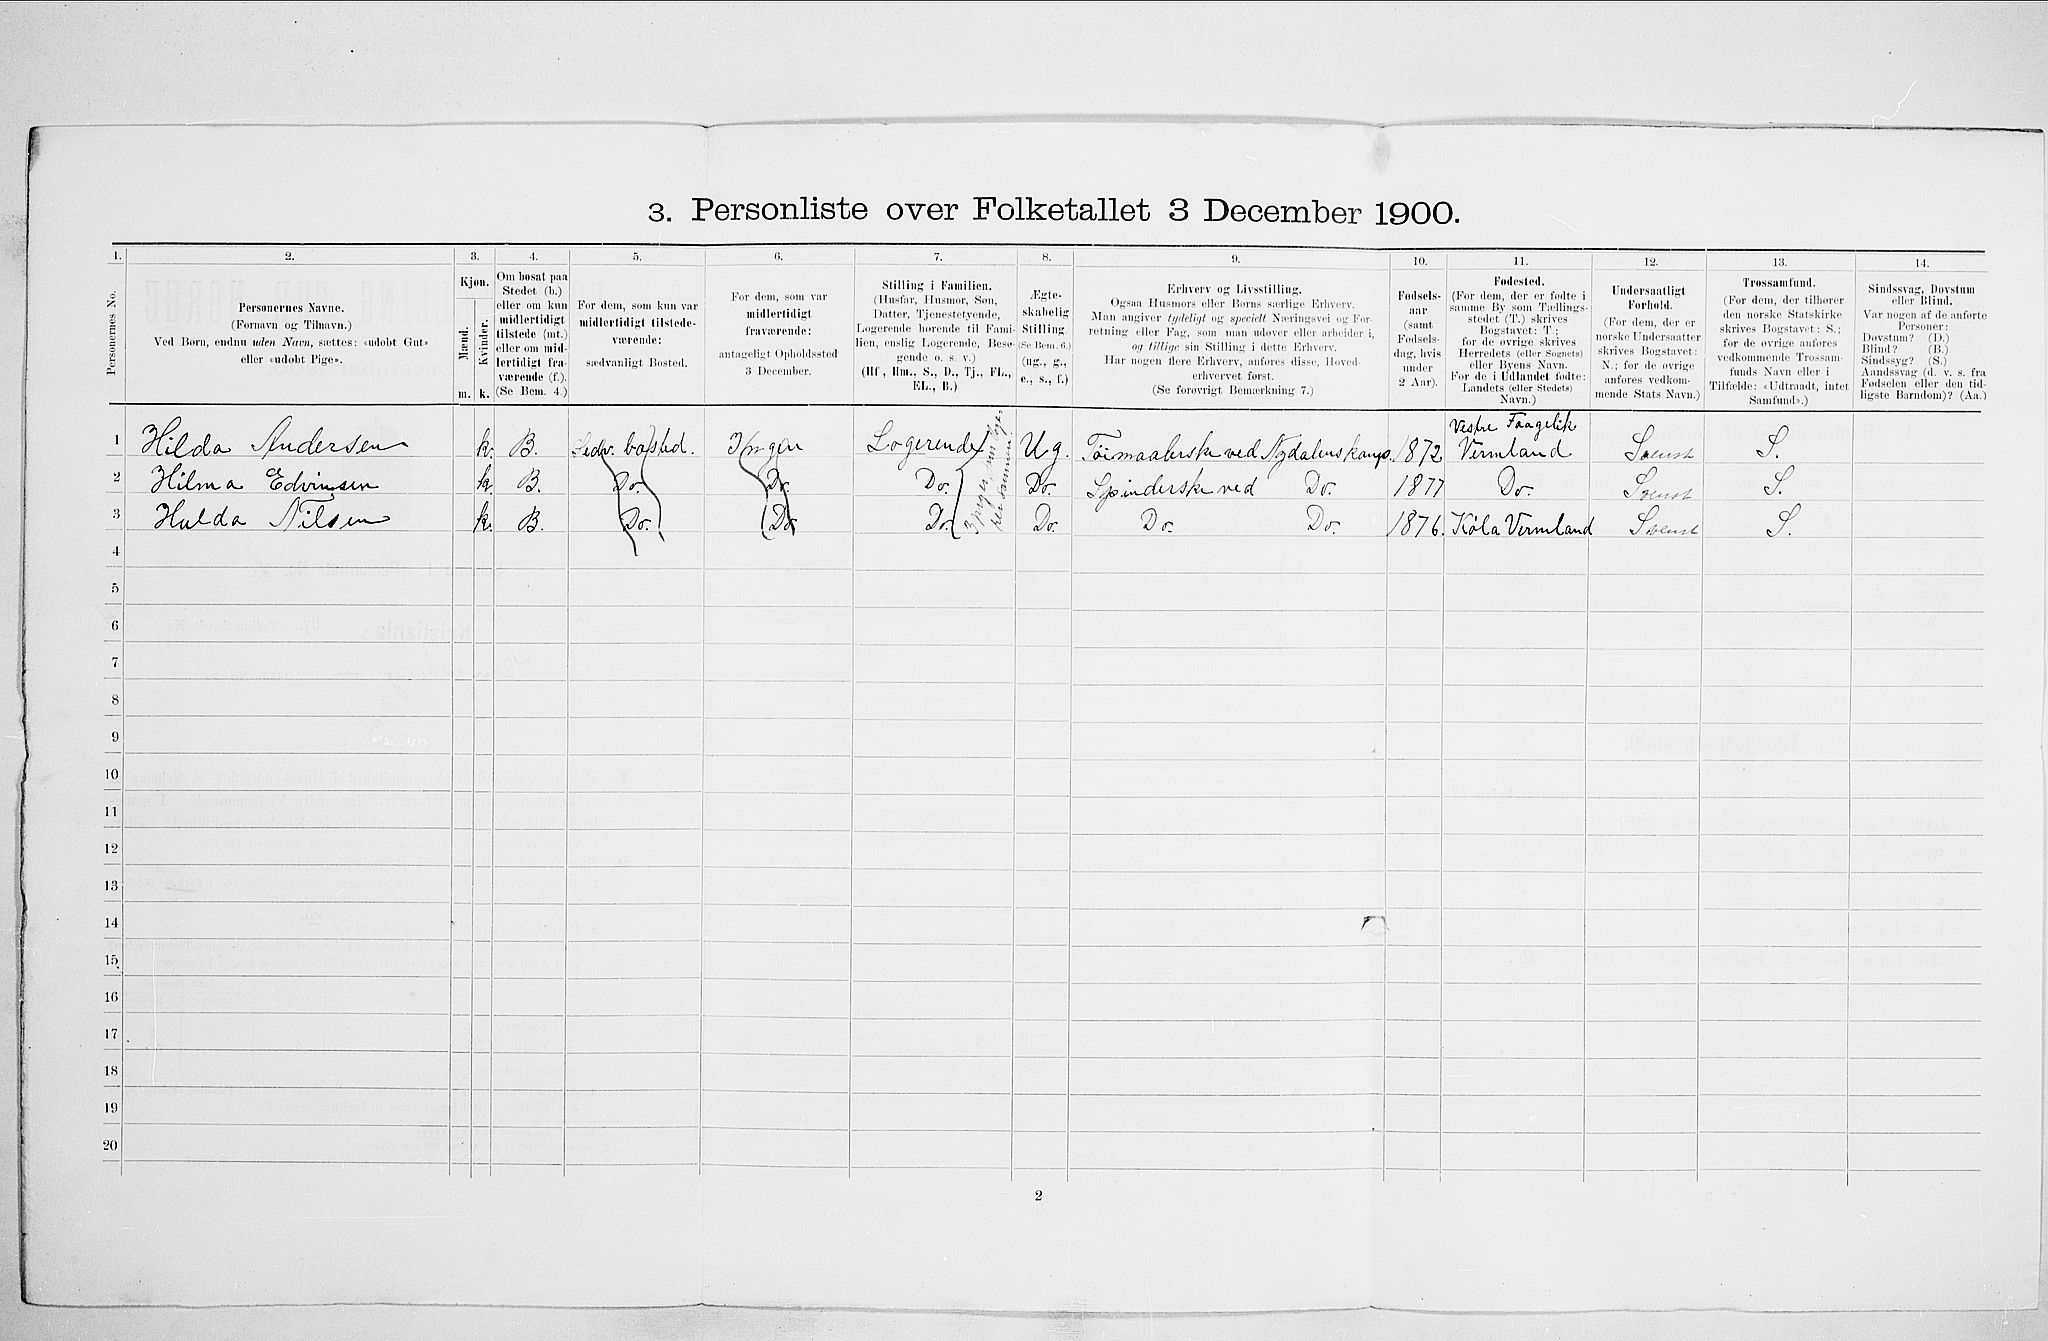 3. Personliste over Folketallet 3 December 1900.
1. 2. 3. 4. 5. 6. 7. 8. 9. 10. 11. 12. 13. 14.
Personernes No.
Personernes Navne.
(Fornavn og Tilnavn.)
Ved Børn, endnu uden Navn, sættes: «udøbt Gut»
eller «udøbt Pige».
Kjøn.
Mænd.
Kvinder.
m. k.
Om bosat paa
Stedet (b.)
eller om kun
midlertidigt
tilstede (mt.)
eller om mid-
lertidigt fra-
værende (f.).
(Se Bem. 4.)
For dem, som kun var
midlertidigt tilstede-
værende:
sædvanligt Bosted.
For dem, som var
midlertidigt
fraværende:
antageligt Opholdssted
3 December.
Stilling i Familien.
(Husfar, Husmor, Søn,
Datter, Tjenestetyende,
Logerende hørende til Fami-
lien, enslig Logerende, Besø-
gende o. s. v.)
(Hf., Hm., S., D., Tj., FL.,
EL., B.)
Ægte-
skabelig
Stilling.
(Se Bem. 6.)
(ug., g.,
e., s., f.)
Erhverv og Livsstilling.
Ogsaa Husmors eller Børns særlige Erhverv.
Man angiver tydeligt og specielt Næringsvei og For-
retning eller Fag, som man udøver eller arbeider i,
og tillige sin Stilling i dette Erhverv.
Har nogen flere Erhverv, anføres disse, Hoved-
erhvervet først.
(Se forøvrigt Bemærkning 7.)
Fødsels-
aar
(samt
Fødsels-
dag, hvis
under
2 Aar).
Fødested.
(For dem, der er fødte i
samme By som Tællings-
stedet (T.) skrives
Bogstavet: T.;
for de øvrige skrives
Herredets (eller Sognets)
eller Byens Navn.
For de i Udlandet fødte:
Landets (eller Stedets)
Navn.)
Undersaatligt
Forhold.
(For dem, der er
norske Undersaatter
skrives Bogstavet:
N.; for de øvrige
anføres vedkom-
mende Stats Navn.)
Trossamfund.
(For dem, der tilhører
den norske Statskirke
skrives Bogstavet: S.;
for de øvrige anføres
vedkommende Trossam-
funds Navn eller i
Tilfælde: «Udtraadt, intet
Samfund».)
Sindssvag, Døvstum
eller Blind.
Var nogen af de anførte
Personer:
Døvstum? (D.)
Blind? (B.)
Sindssyg? (S.)
Aandssvag (d. v. s. fra
Fødselen eller den tid-
ligste Barndom)? (Aa.)
Vestre Faagelik
1 Hilda Andersen k. B. Sedv. bosted. Ingen Logerende Ug. Tøimaalerske ved Nydalens komp. 1872 Vermland Svensk S.
2 Hilma Edvinsen k. B. Do. Do. Do. Do. Spinderske ved Do. 1877 Do. Svensk S.
3 Hulda Nilsen k. B. Do. Do. Do. Do. Do. Do. 1876. Köla Vermland Svensk S.
3 piger
4
5
6
7
8
9
10
11
12
13
14
15
16
17
18
19
20
2